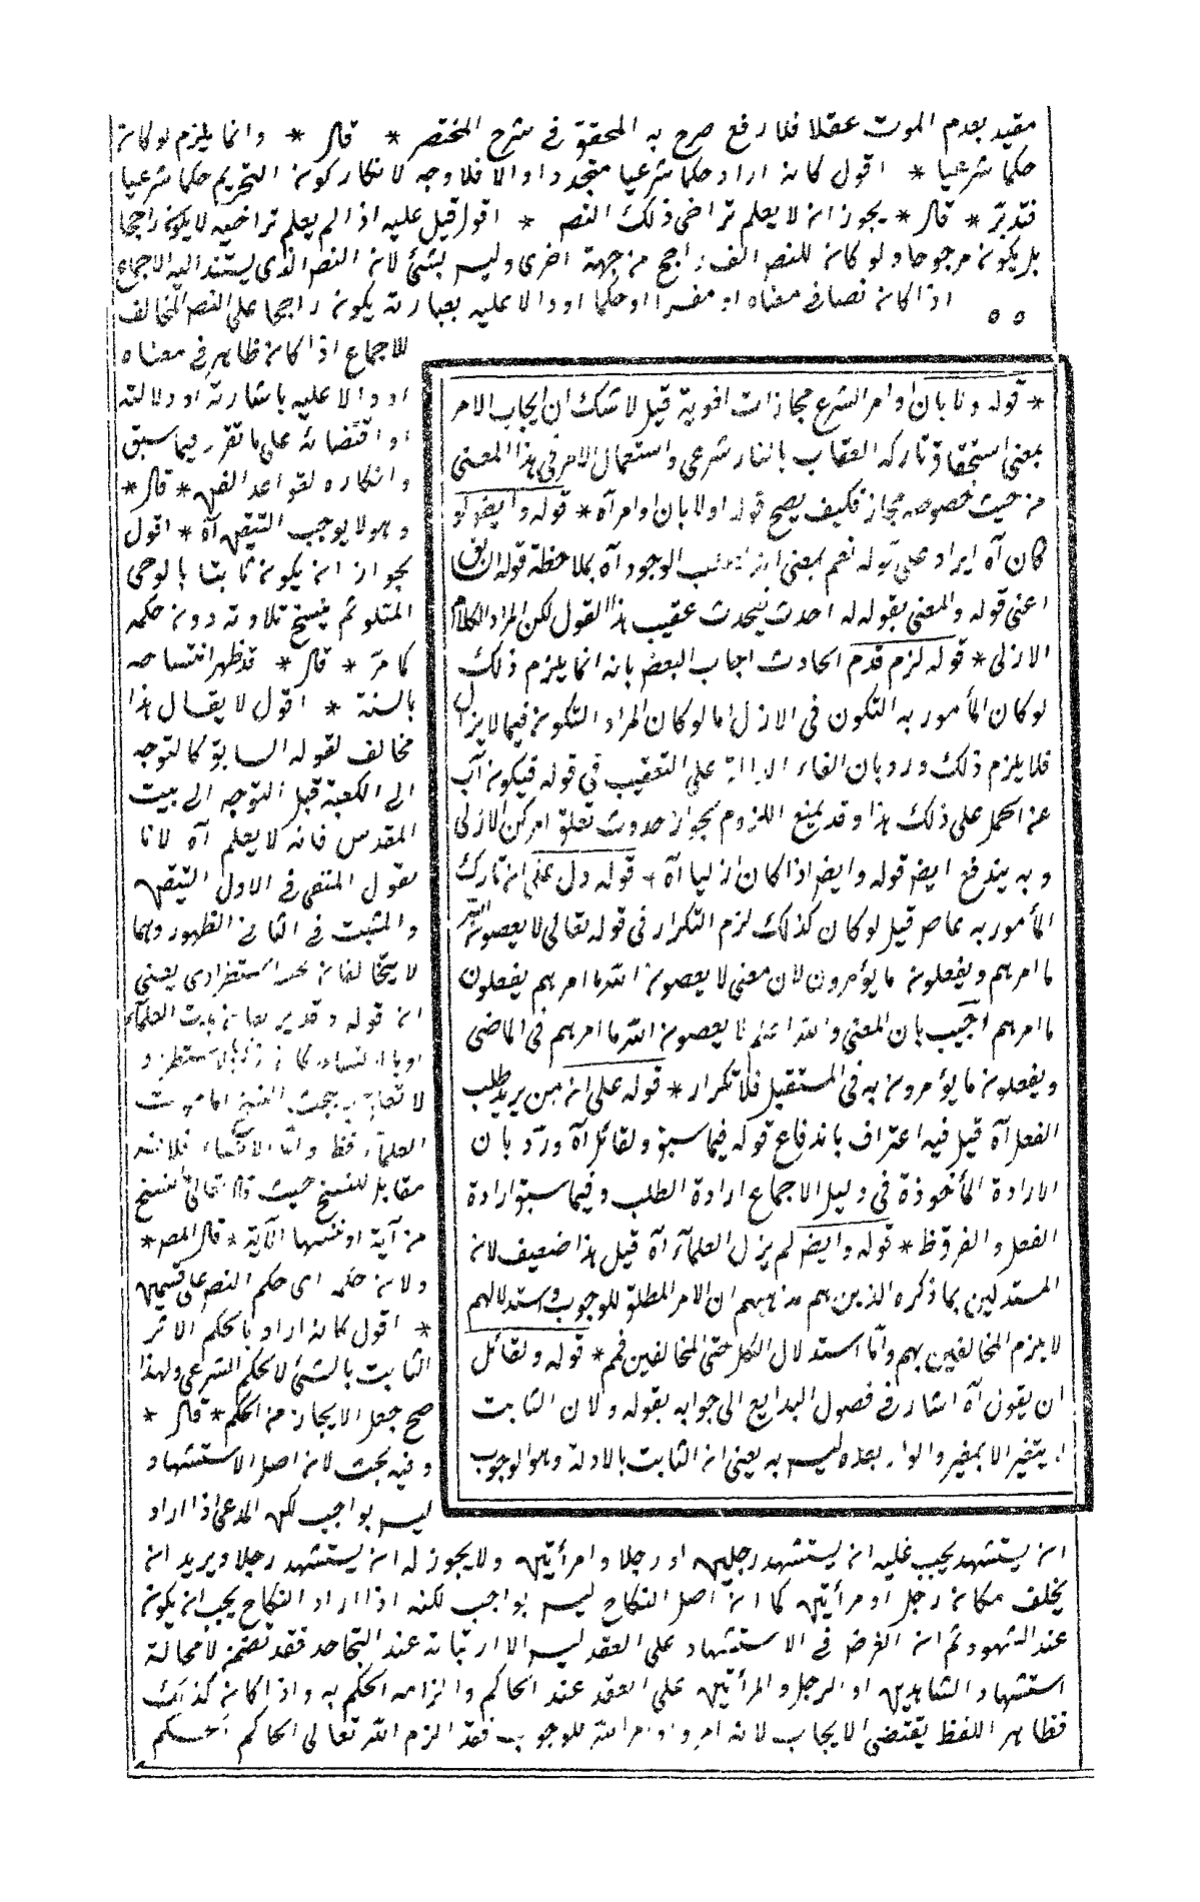 مقيد بعدم الموت عقلا فلا رفع صرح به المحقق في شرح المختصر * قال * وانما يلزم لو كان
حكما شرعيا * اقول كانه اراد حكما شرعيا متجددا والا فلا وجه لانكار كون التحريم حكما شرعيا
فتدبر * قال * يجوز ان لا يعلم تراخى ذلك النص * اقول قيل عليه اذا لم يعلم تراخيه لا يكون راجحا
بل يكون مرجوحا ولو كان للنص راجح من جهة اخرى وليس بشئ لان النص الذى يستند اليه الاجماع
اذا كان نصا في معناه او مفسرا او محكما او دالا عليه بعبارته يكون راجحا على النص المخالف
للاجماع اذا كان ظاهر في معناه
او دالا عليه باشارته او دلالته
او اقتضائه على ما تقرر فيما سبق
وانكاره لقواعد الفن * قال *
وهو لا يوجب التيقن آه * اقول
بجواز ان يكون ثابتا بالوحى
المتلو ثم ينسخ تلاوته دون حكمه
كما مر * قال * قد ظهر انتساخه
بالسنة * اقول لا يقال هذا
مخالف لقوله السابق كالتوجه
الى الكعبة قبل التوجه الى بيت
المقدس فانه لا يعلم آه لانا
نقول المنتفى في الاول التيقن
والمثبت في الثانى الظهور وهما
لا يتخالفان استطرادى يعنى
ان قوله وقد
لا بحث النسخ اما موت
العلماء فظ واما الانساء فلانه
مقابل للنسخ حيث قال تعالى ما ننسخ
من آية او ننسها الآية * قال المص *
ولان حكمه اى حكم النص على قسمين
* اقول كانه اراد بالحكم الاثر
الثابت بالشئ لا الحكم الشرعى ولهذا
صح جعل الايجاز من الحكم * قال *
وفيه بحث لان اصل الاستشهاد
ليس بواجب لكن المدعى اذا اراد
ان يستشهد يجب عليه ان يستشهد رجلين او رجلا وامرأتين ولا يجوز له ان يستشهد رجلا ويريد ان
يخلف مكان رجل او مرأتين كما ان اصل النكاح ليس بواجب لكنه اذا اراد النكاح يجب ان يكون
عند الشهود ثم ان الغرض في الاستشهاد على العقد ليس الا اثباته عند التجاحد فقد تضمن لا محالة
استشهاد الشاهدين او الرجل والمرأتين على العقد عند الحاكم والزامه الحكم به واذا كان كذلك
فظاهر اللفظ يقتضى الايجاب لانه امر واوامر الله للوجوب فقد الزم الله تعالى الحاكم الحكم
* قوله وثانيا بان اوامر الشرع مجازات لغوية قيل لا شك ان ايجاب الامر
بمعنى استحقاق تاركه العقاب بالنار شرعى واستعمال الامر في هذا المعنى
من حيث خصوصه مجاز فكيف يصح قوله اولا بان اوامر آه * قوله وايضا لو
كان آه ايراد على قوله نعم بمعنى الوجود آه بملاحظة قوله السابق
اعنى قوله والمعنى بقوله له احدث يتحدث عقيب هذا القول لكن المراد الكلام
الازلى * قوله لزم قدم الحادث اجاب البعض بانه انما يلزم ذلك
لو كان المأمور به التكون في الازل اما لو كان المراد التكون فيما لا يزال
فلا يلزم ذلك ورد بان الفاء الدالة على التعقيب في قوله فيكون آب
عن الحمل على ذلك هذا وقد يمنع اللزوم بجواز حدوث تعلق امر كن الازلى
وبه يندفع ايض قوله وايض اذا كان ازليا آه * قوله دل على ان تارك
المأمور به عاص قيل لو كان كذلك لزم التكرار في قوله تعالى لا يعصون الله
ما امرهم ويفعلون ما يؤمرون لان معنى لا يعصون الله ما امرهم يفعلون
ما امرهم اجيب بان المعنى والله اعلم لا يعصون الله ما امرهم في الماضى
ويفعلون ما يؤمرون به في المستقبل فلا تكرار * قوله على ان من يريد طلب
الفعل آه قيل فيه اعتراف باندفاع قوله فيما سبق ولقائل آه ورد بان
الارادة المأخوذة في دليل الاجماع ارادة الطلب وفيما سبق ارادة
الفعل والفرق ظ * قوله وايض لم يزل العلماء آه قيل هذا ضعيف لان
المستدلين بما ذكره الذين هم مذهبهم ان الامر المطلق للوجوب واستدلالهم
لا يلزم المخالفين بهم واما استدلال الكل حتى المخالفين فمم * قوله ولقائل
ان يقول آه اشار في فصول البدايع الى جوابه بقوله ولان الثابت
يتغير الا بمغير والوارد بعده ليس به يعنى ان الثابت بالادلة وهو الوجوب